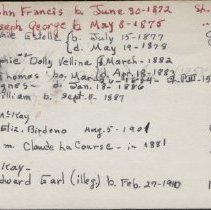 hn Francis b. June 30-1872 Sh.
seph George b. May 8-1875
hie Estelle b. July 15-1877
d. May 19-1878
phie Dolly Vellina March-1882
homas
gnes- d. Jan. 18-1886
illiam b. Sept. 8-1887
McKay
Eliz. Birdeno Aug. 5-1901
m Claude LaCourse - in 1881
Kay-
dward Earl (illeg) b. Feb. 27-1910